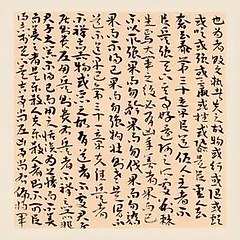 也為者敗之執者失之故物或行或隨或
或吹或強或羸或或隳是以聖人去
奢去泰 三十章 以道佐人主者不
以兵強天下其事好還師之所處荊棘
生焉大軍之後必有凶年善者果而已
不以取強果而勿矜果而勿伐果而勿驕
果而不得已果而勿強物壯則老是謂
不道不道早已 三十一章 夫佳兵者
不祥之器物或惡之故有道者不處君子
居則貴左用兵則貴右兵者不祥之器非
君子之器不得已而用之恬淡為上勝而不美
而美之者是樂殺人夫樂殺人者不可
於天下矣吉事尚左凶事尚右偏將軍